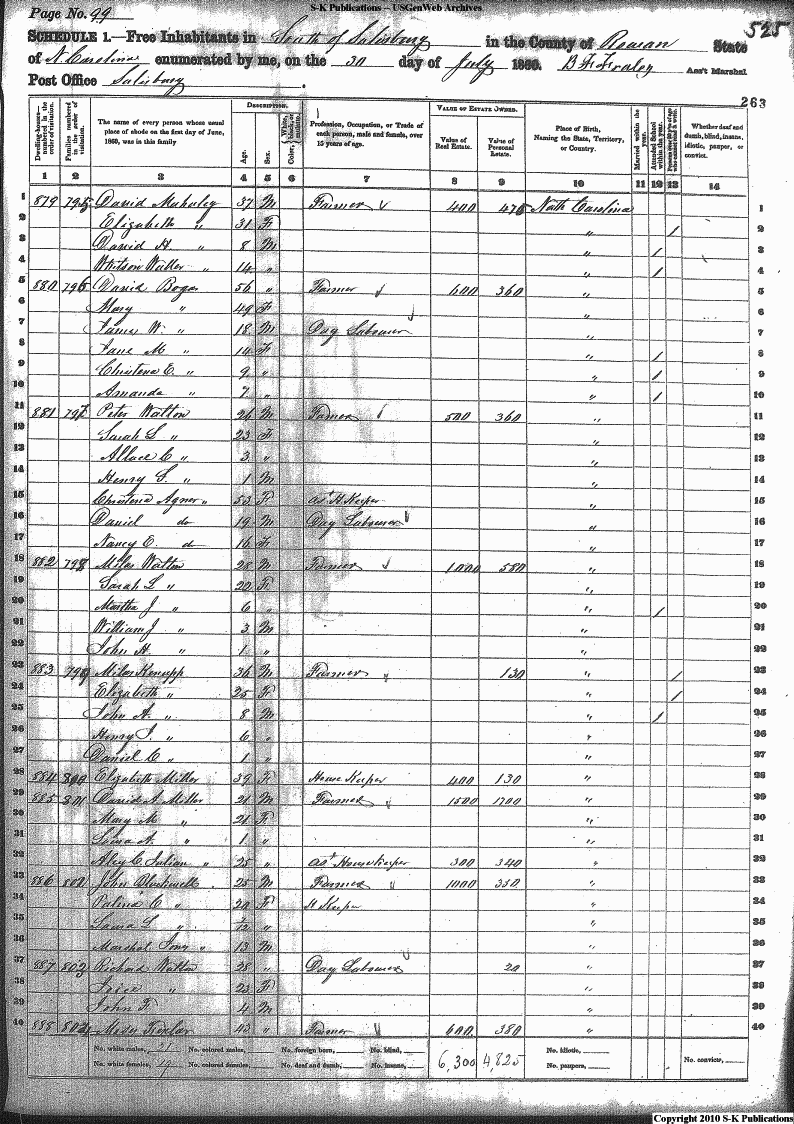 S-K Publications – USGenWeb Archives
Page No. 99
525
SCHEDULE 1.—Free Inhabitants in South of Salisbury in the County of Rowan State
of N. Carolina enumerated by me, on the 30 day of July 1860. B F Fraley Ass't Marshal
Post Office Salisbury
263
Dwelling-houses— numbered in the order of visitation. Families numbered in the order of visitation. The name of every person whose usual place of abode on the first day of June, 1860, was in this family DESCRIPTION. Age. Sex. Color, White, black, or mulatto. Profession, Occupation, or Trade of each person, male and female, over 15 years of age. VALUE OF ESTATE OWNED. Value of Real Estate. Value of Personal Estate. Place of Birth, Naming the State, Territory, or Country. Married within the year. Attended School within the year. Whether deaf and dumb, blind, insane, idiotic, pauper, or convict.
1 2 3 4 5 6 7 8 9 10 11 12 13 14
1 879 795 David 37 M Farmer 400 475 North Carolina 1
2 Elizabeth " 31 F " / 2
3 David H. " 8 M " / 3
4 Waller " 14 " " / 4
5 880 796 David 56 " Farmer 600 360 " 5
6 Mary " 49 F " 6
7 James W. " 18 M Day Labourer " 7
8 Jane M " 14 F " / 8
9 Christena E. " 9 " " / 9
10 Amanda " 7 " " / 10
11 881 797 Peter Walton 26 M Farmer 500 360 " 11
12 Sarah L " 23 F " 12
13 Allace C " 3 " " 13
14 Henry G. " 1 M " 14
15 Christena Agner " 53 F ast H Keeper " 15
16 Daniel do 19 M Day Labourer " 16
17 Nancy E. do 16 F " 17
18 882 798 Miles Walton 28 M Farmer 1000 580 " 18
19 Sarah L " 20 F " 19
20 Martha J " 6 " " / 20
21 William J " 3 M " 21
22 John H. " 1 " " 22
23 883 799 Miles Kenupp 36 M Farmer 130 " / 23
24 Elizabeth " 25 F " / 24
25 John A. " 8 M " / 25
26 Henry J. " 6 " " 26
27 Daniel C " 1 " " 27
28 884 800 Elizabeth Miller 39 F House Keeper 400 130 " 28
29 885 801 David A. Miller 21 M Farmer 1500 1700 " 29
30 Mary M " 21 F 30
31 Laura A. " 1 " 31
32 Aley C. Julian " 25 " ast House Keeper 300 340 " 32
33 886 802 John 25 M Farmer 1000 350 " 33
34 C " 20 F H Keeper 34
35 Laura L " 35
36 Marshal " 13 M " 36
37 887 803 Richard Walton 28 " Day Labourer 20 " 37
38 " 23 F " 38
39 John F. 4 M " 39
40 888 804 43 " Farmer 600 380 " 40
No. white males, 21 No. colored males, No. foreign born, No. blind, 6,300 4,825 No. idiotic,
No. white females, 19 No. colored females, No. deaf and dumb, No. insane, No. paupers, No. convicts,
Copyright 2010 S-K Publications